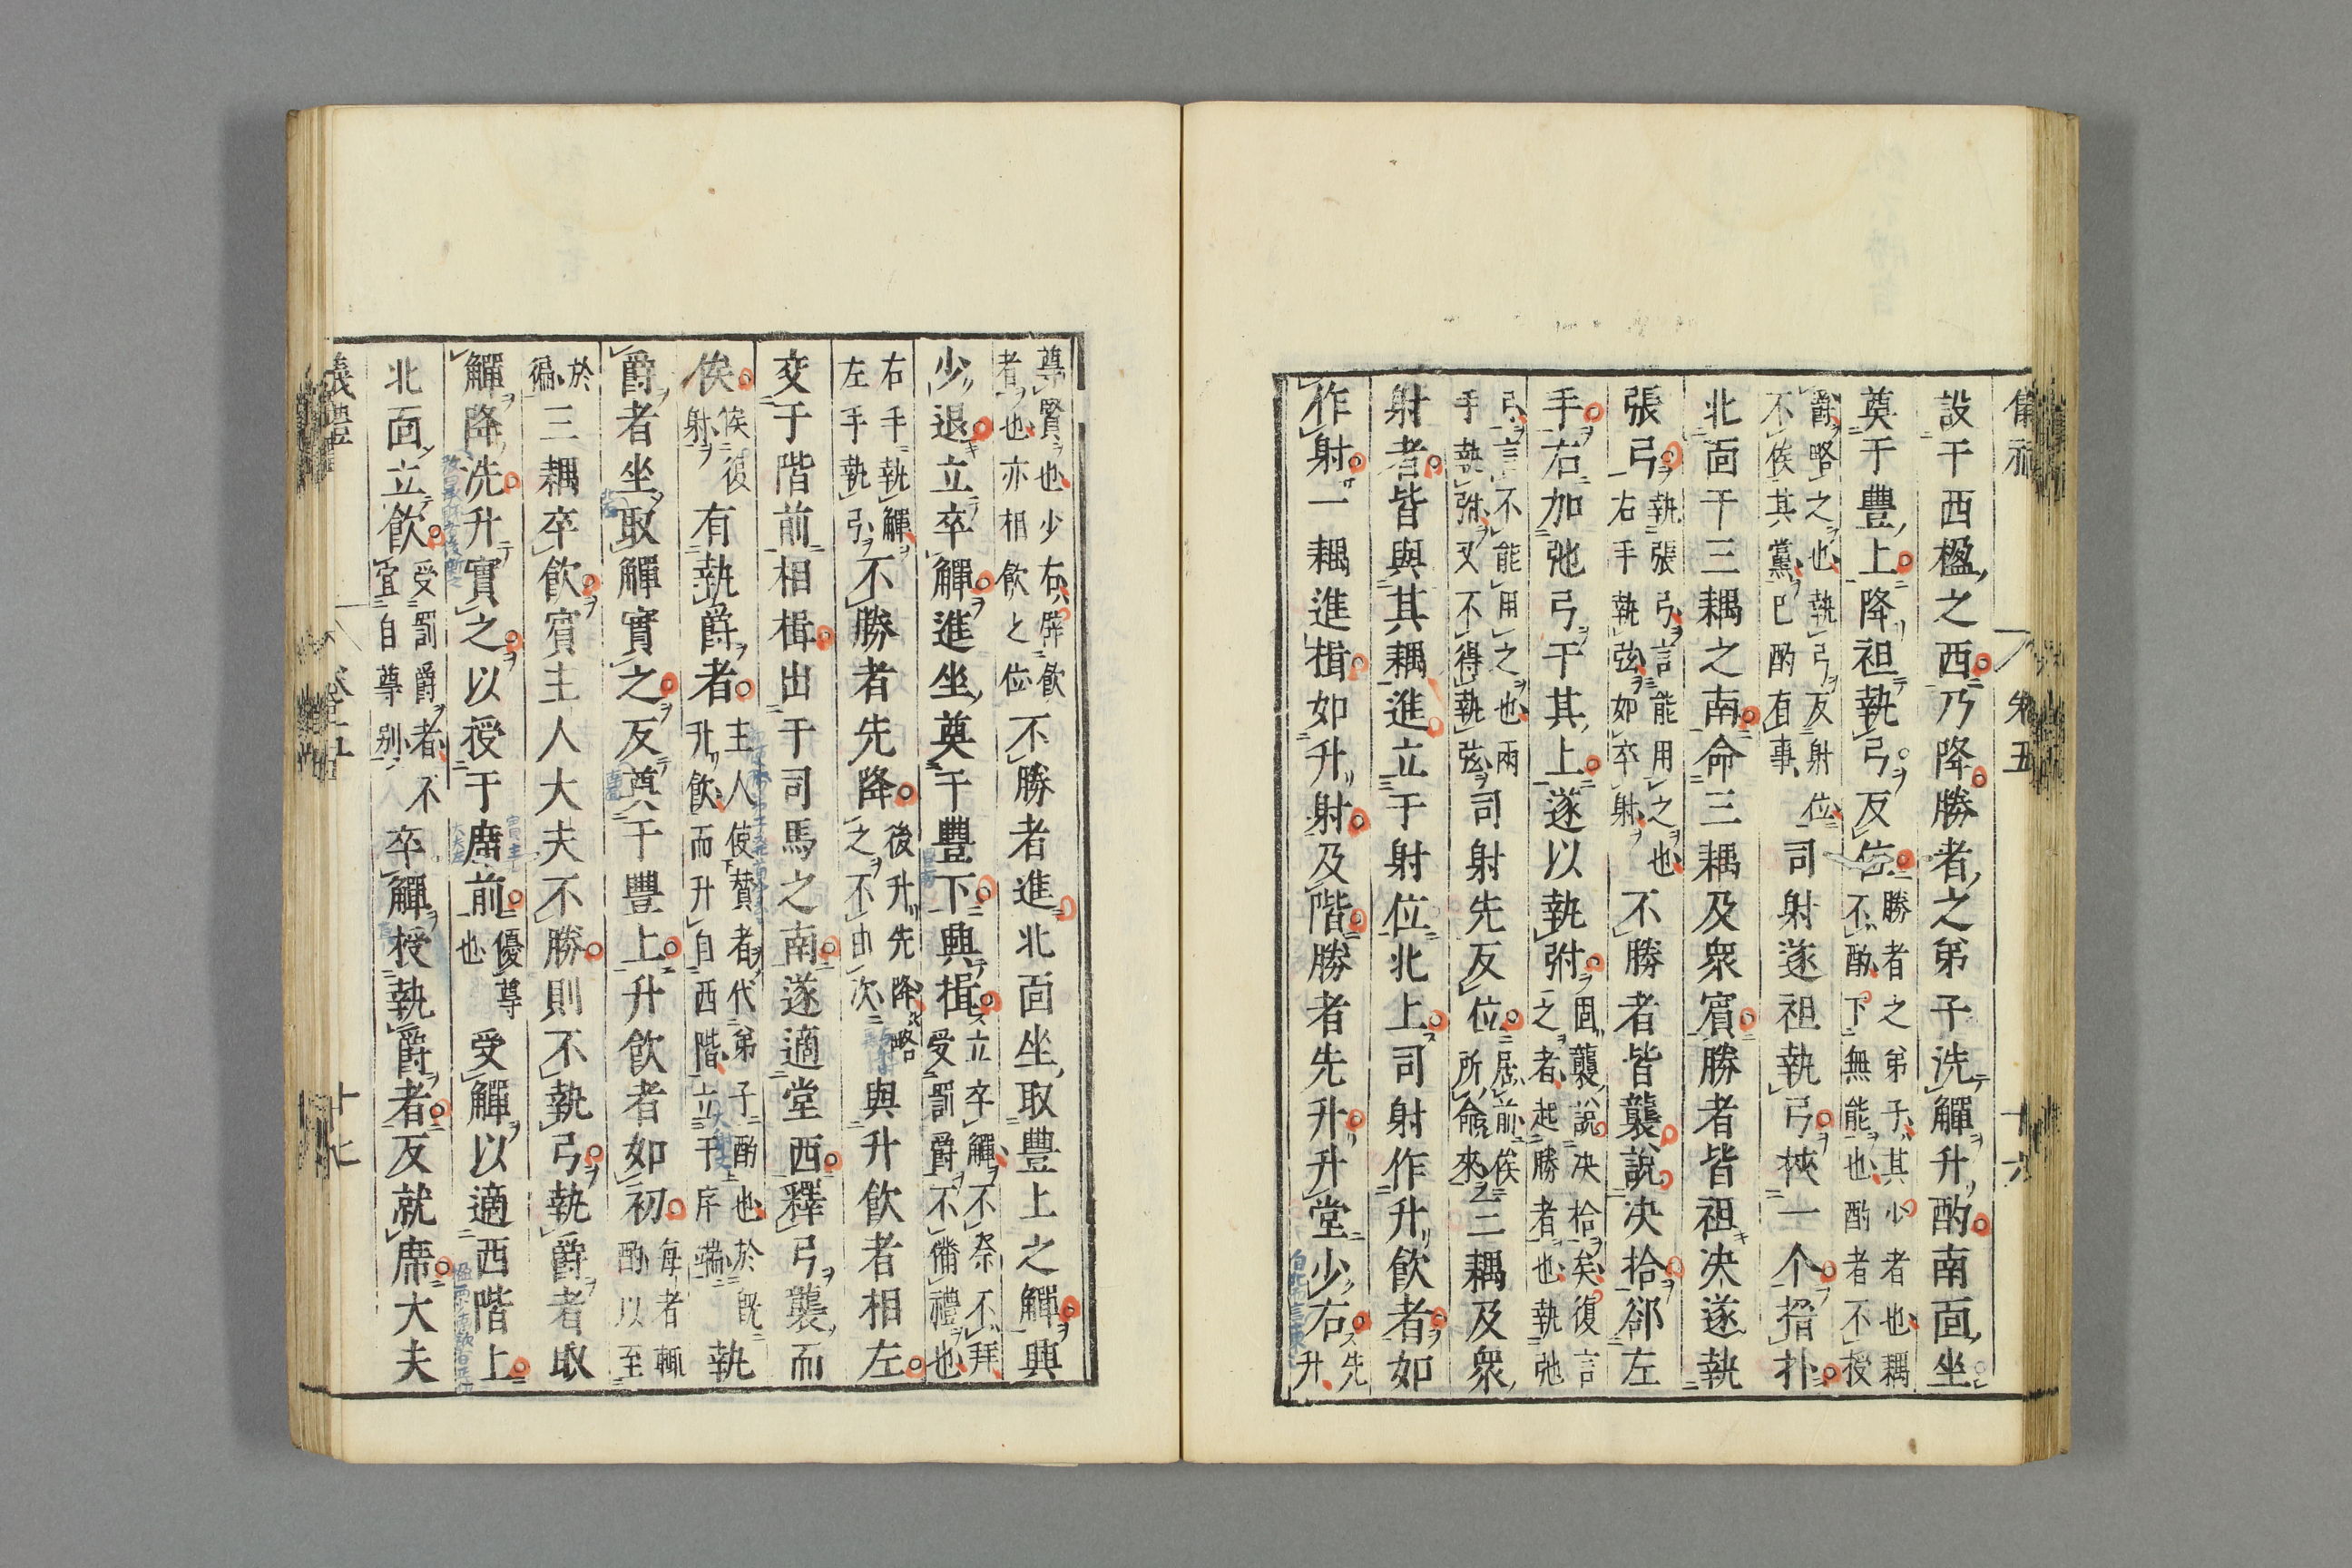 設于西楹之西乃降勝者之弟子洗觶升酌南面坐
奠于豊上降袒執弓反位勝者之弟子其少者也耦不酌下無能也酌者不授
爵略之也執弓反射位不俟其黨巳酌有事司射遂袒執弓挾一个搢扑
北面于三耦之南命三耦及衆賓勝者皆袒决遂執
張弓執張弓言能用之也右手執弦如卒射不勝者皆襲說决拾郤左
手右加弛弓于其上遂以執弣固襲說决拾矣復言之者起勝者也執弛
弓言不能用之也兩手執弣又不得執弦司射先反位居前俟所命來三耦及衆
射者皆與其耦進立于射位北上司射作升飲者如
作射一耦進揖如升射及階勝者先升升堂少右先升
尊賢也少右辟飲者也亦相飲之位不勝者進北面坐取豊上之觶興
少退立卒觶進坐奠于豊下興揖立卒觶不祭不拜受罰爵不備禮也
右手執觶左手執弓不勝者先降後升先降略之不由次與升飲者相左
交于階前相揖出于司馬之南遂適堂西釋弓襲而
俟俟復射有執爵者主人使贊者代弟子酌也於既升飲而升自西階立于序端執
爵者坐取觶實之反奠于豊上升飲者如初每者輒酌以至
於徧三耦卒飲賓主人大夫不勝則不執弓執爵者取
觶降洗升實之以授于席前優尊也受觶以適西階上
北面立飲受罰爵者不宜自尊別卒觶授執爵者反就席大夫
儀禮 卷五 十七